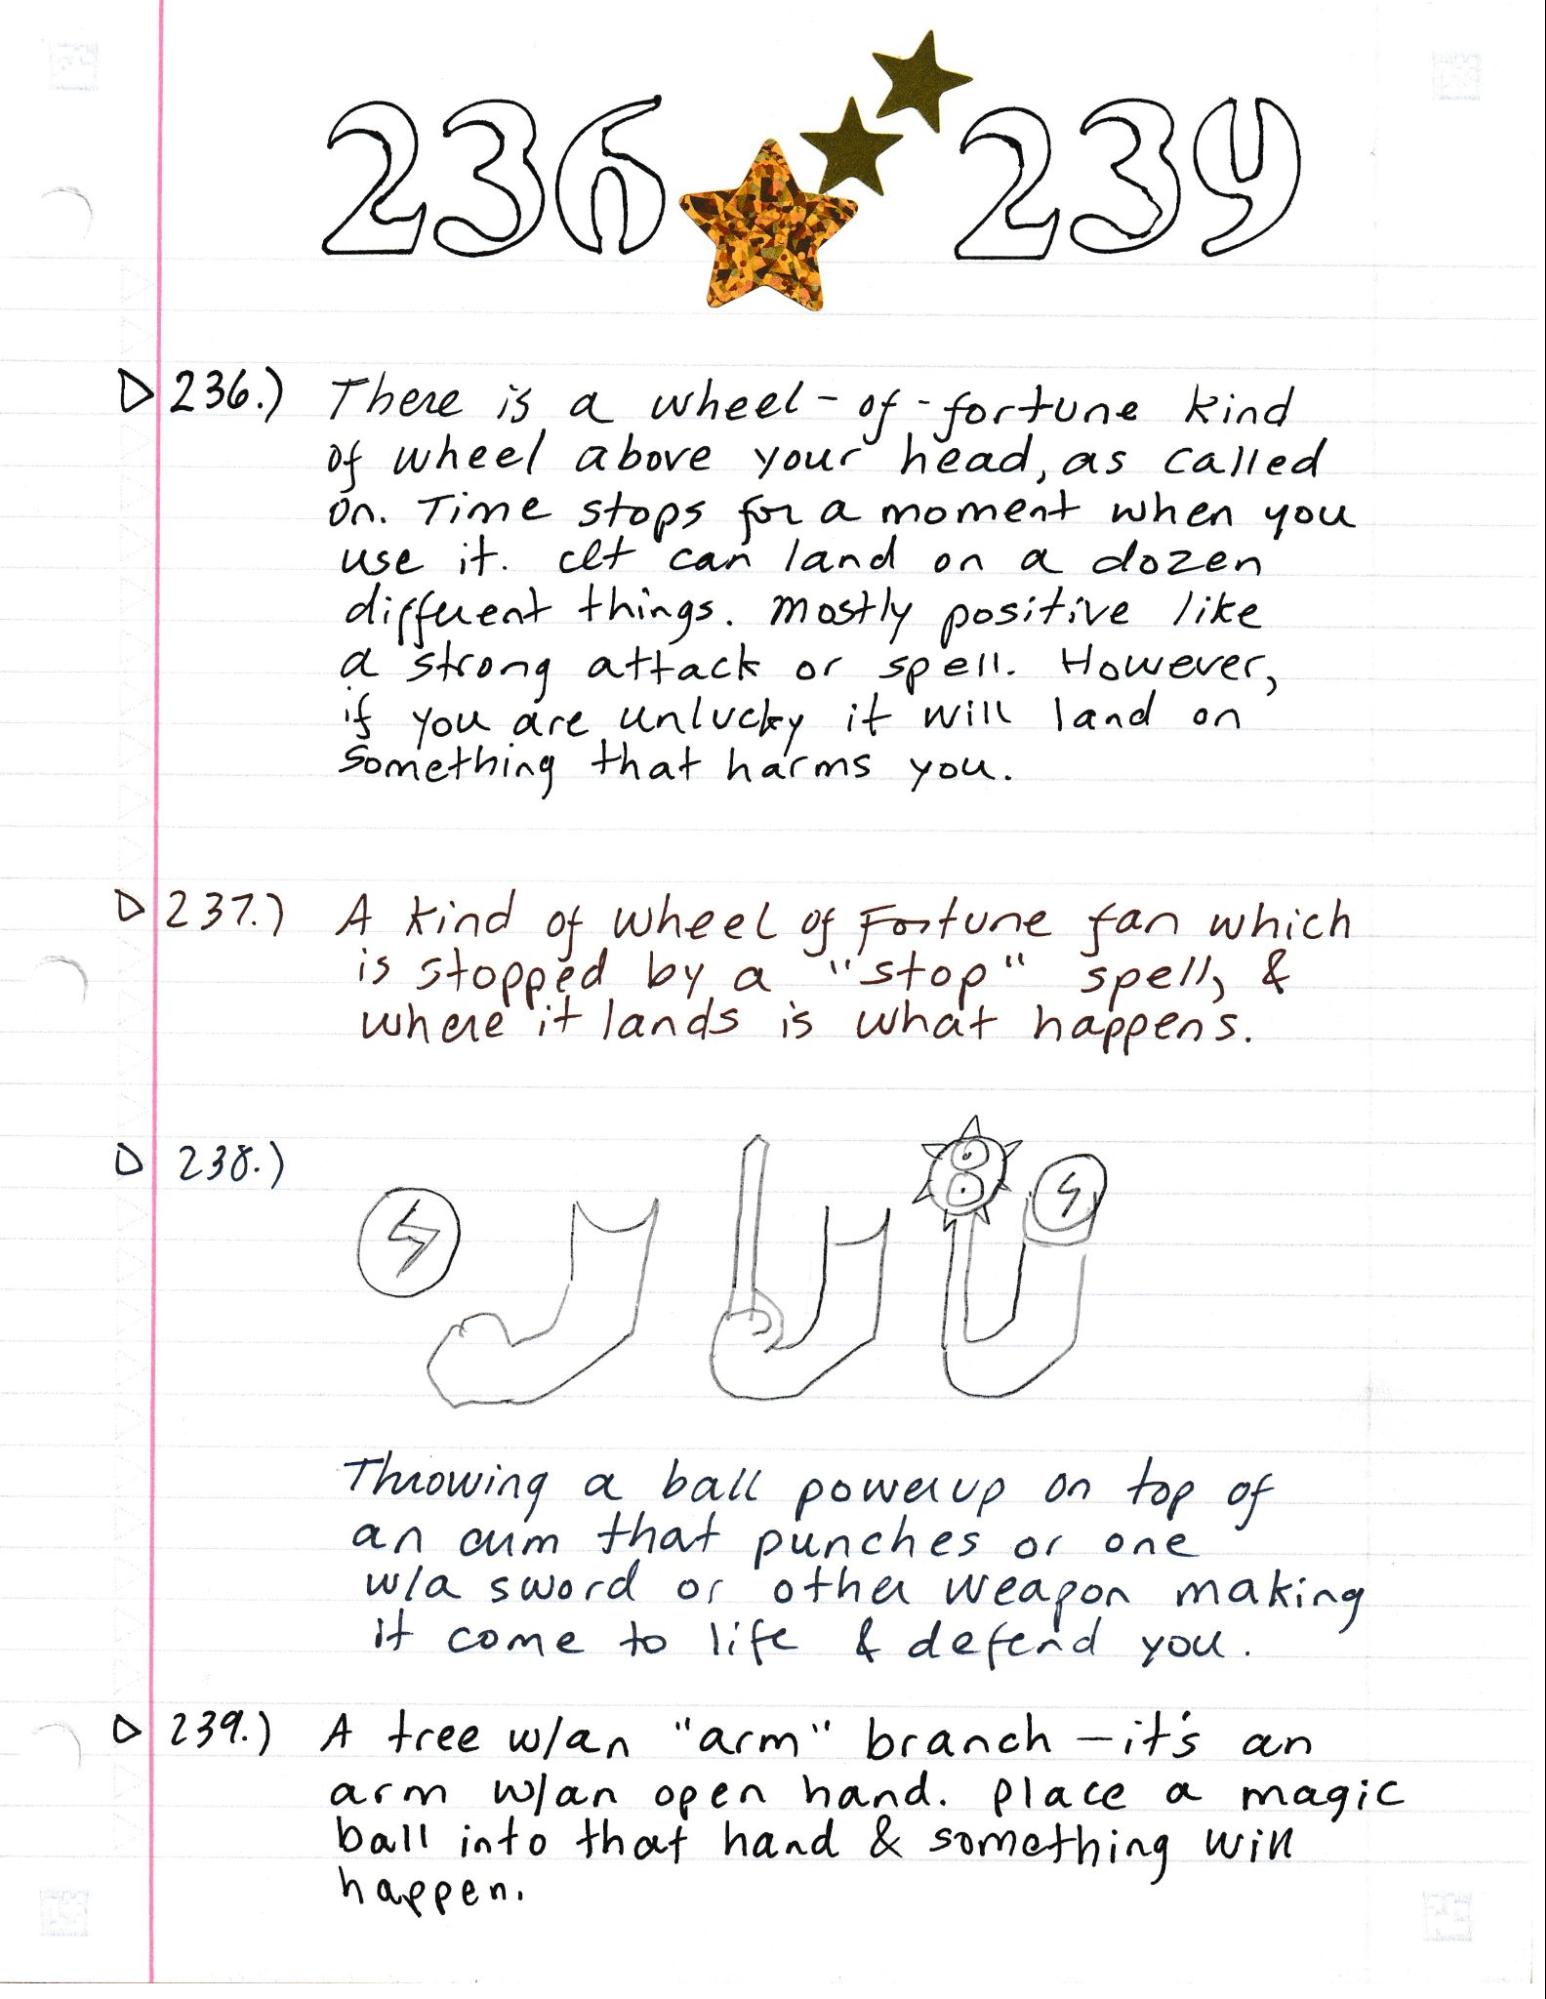 236 239
236.) There is a wheel-of-fortune kind
of wheel above your head, as called
on. Time stops for a moment when you
use it. It can land on a dozen
different things. Mostly positive like
a strong attack or spell. However,
if you are unlucky it will land on
something that harms you.
237.) A kind of wheel of Fortune fan which
is stopped by a "stop" spell, &
where it lands is what happens.
238.)
Throwing a ball powerup on top of
an arm that punches or one
w/a sword or other weapon making
it come to life & defend you.
239.) A tree w/an "arm" branch - it's an
arm w/an open hand. Place a magic
ball into that hand & something will
happen.